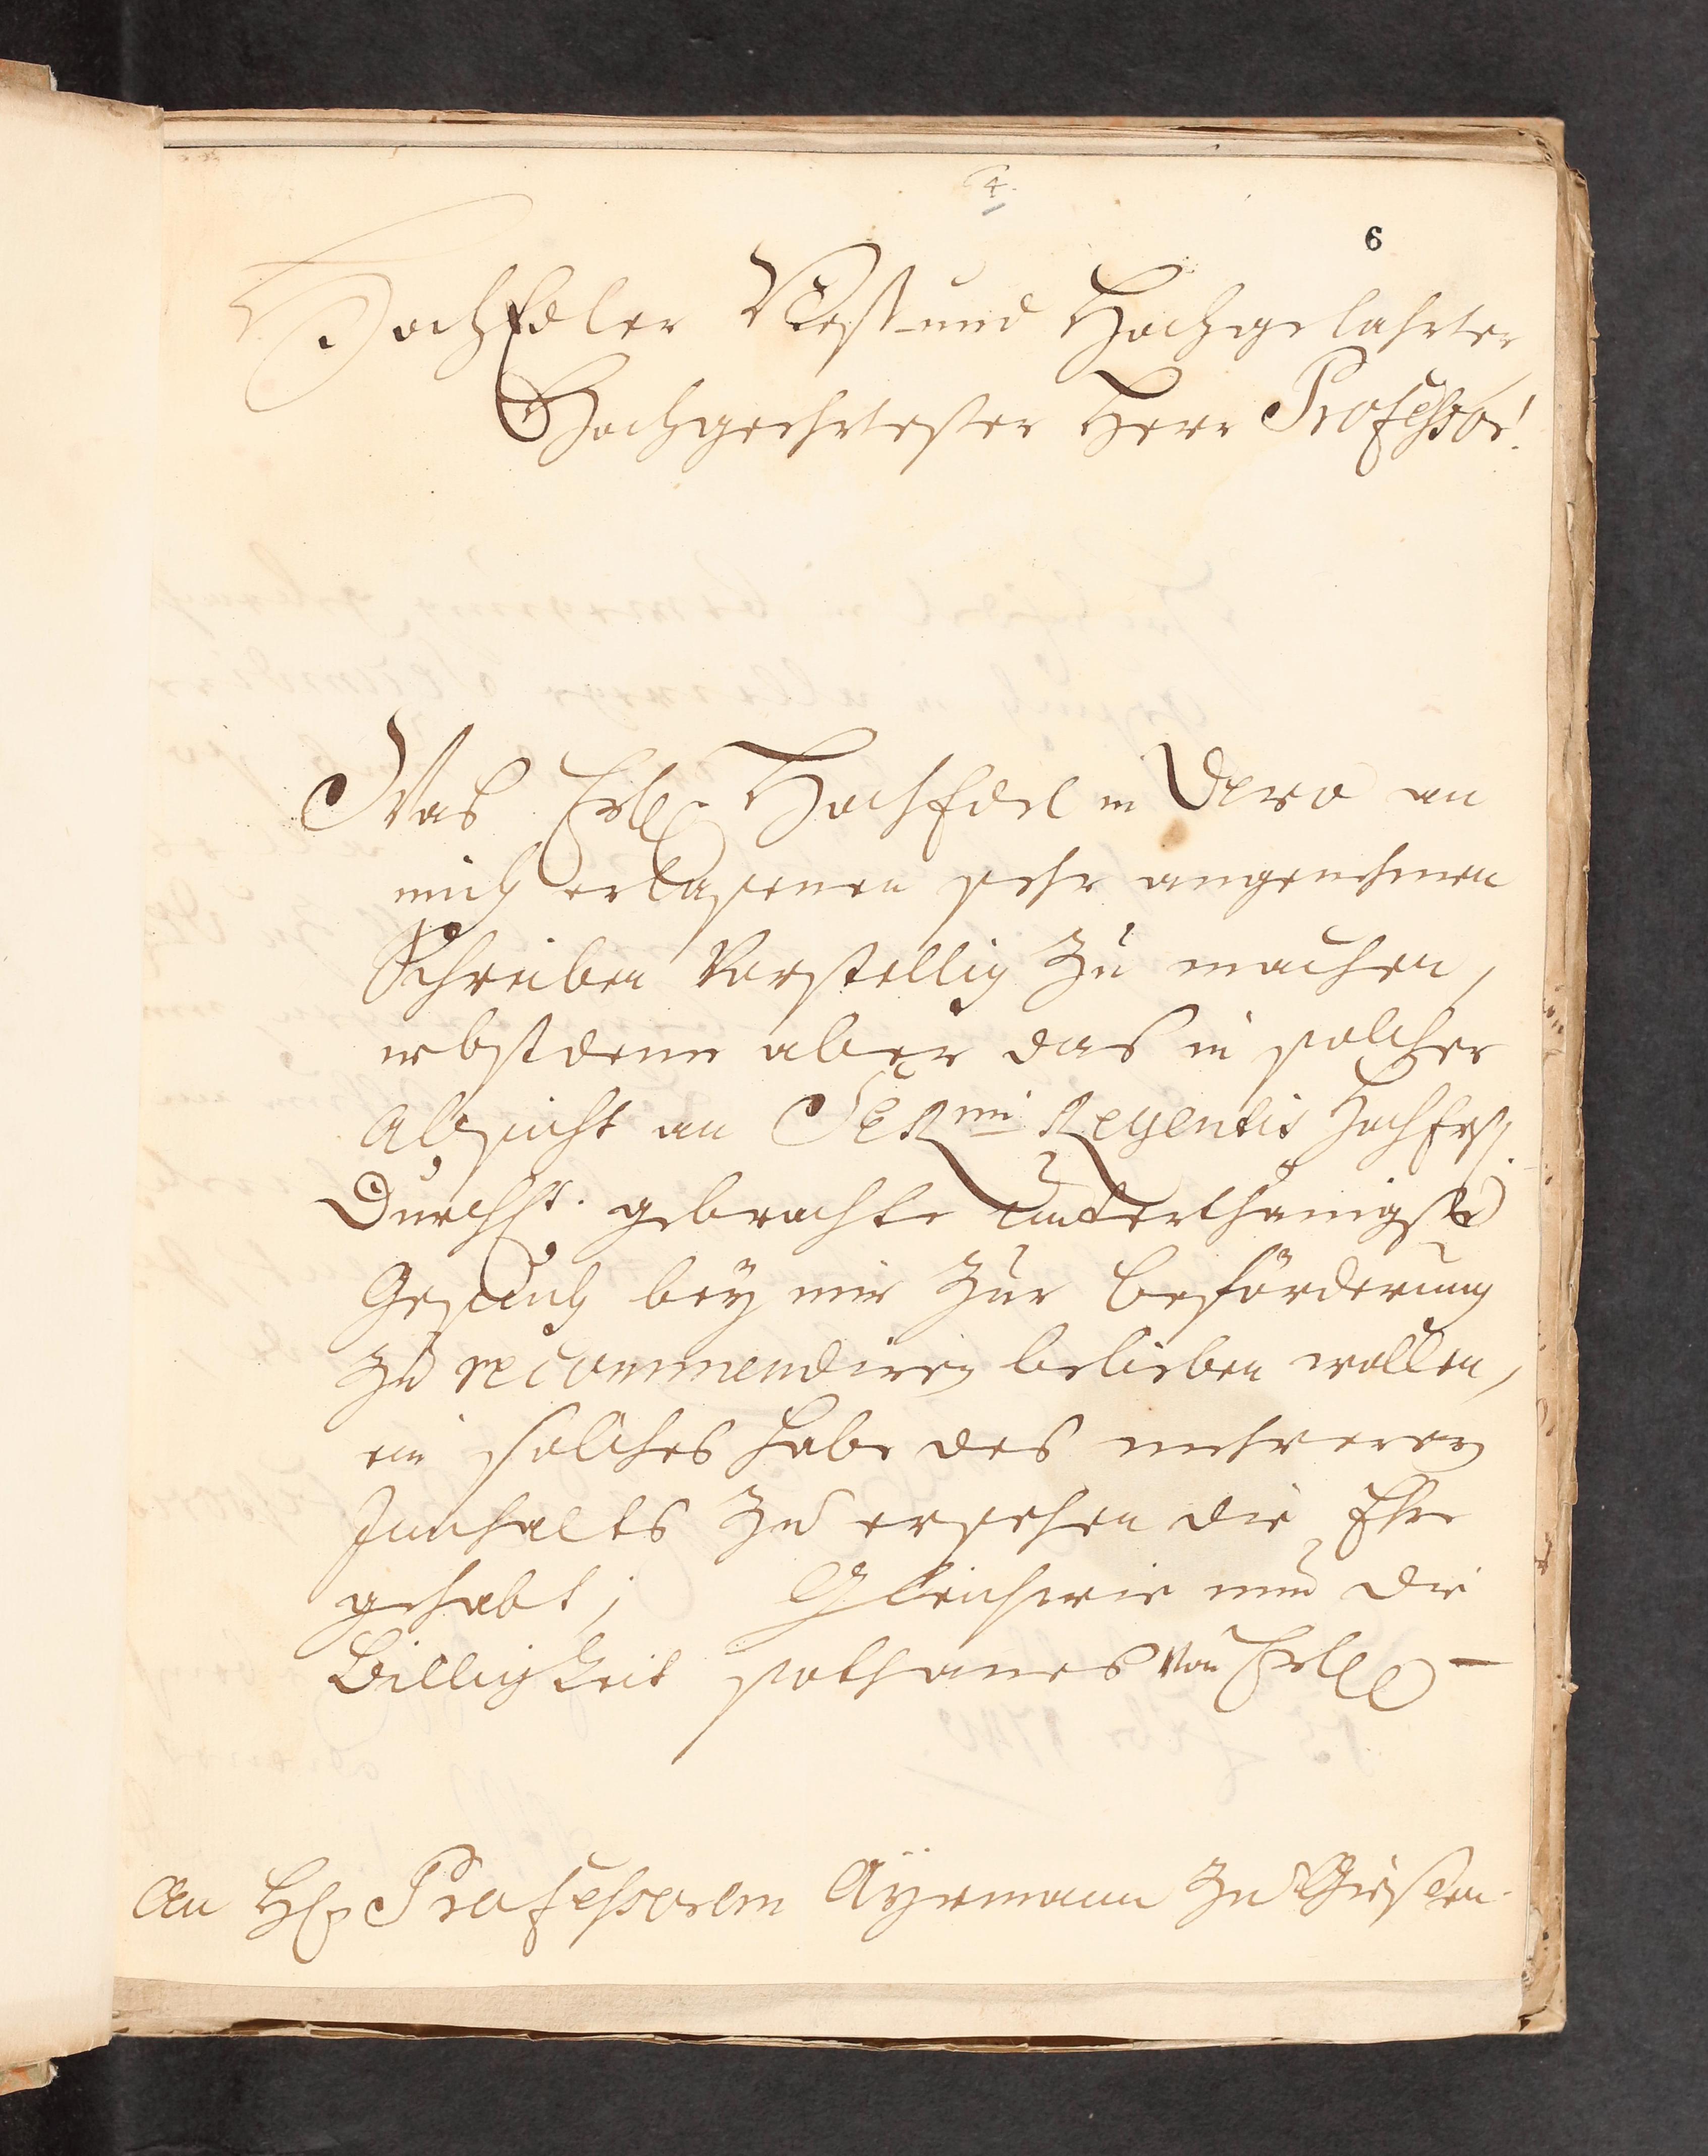 4.
6
HochEdler Vest- und Hochgelahrter
Hochgeehrtester Herr Professor!
Was Ewr. HochEdel in Dero an
mich erlaßenen sehr angenehmen
Schreiben Vorstellig zu machen,
nebst deme aber das in solcher
Absicht an Sermi Regentis Hochfrstl.
Durchlt. gebrachte unterthänigste
Gesuch beÿ mir zur Beförderung
zu recommendiren belieben wollen,
ein solches habe des mehreren
Innhalts zu ersehen die Ehre
gehabt; Gleichwie nun die
Billigkeit sothanes von
An H. Professorem Aÿrmann zu Gießen.